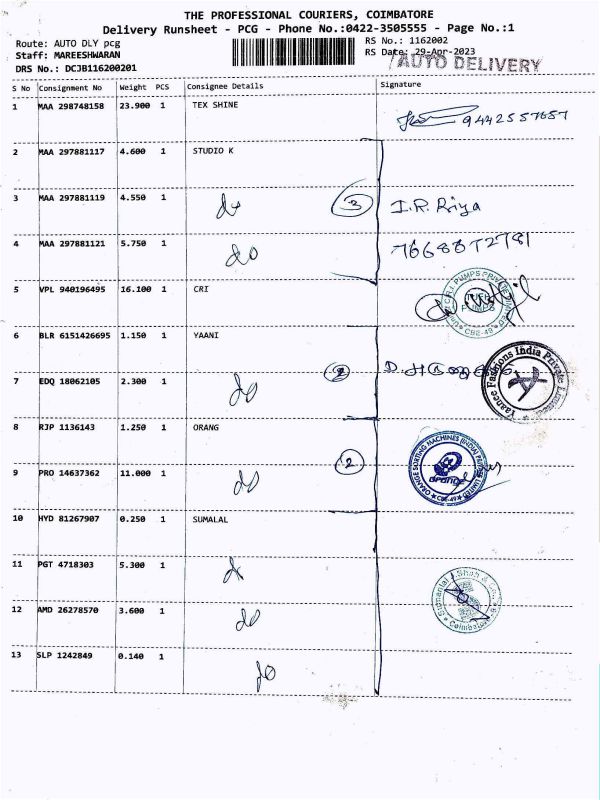 THE PROFESSIONAL COURIERS, COIMBATORE
Delivery Runsheet - PCG - Phone No.:0422-3505555 - Page No.:1
Route: AUTO DLY pcg
RS No.: 1162002
Staff: MAREESHWARAN
RS Date: 29-Apr-2023
AUTO DELIVERY
DRS No.: DCJB116200201
S No Consignment No Weight PCS Consignee Details Signature
1 MAA 298748158 23.900 1 TEX SHINE
2 MAA 297881117 4.600 1 STUDIO K
3 MAA 297881119 4.550 1 do 3 I.R. Riya
4 MAA 297881121 5.750 1 do
5 VPL 940196495 16.100 1 CRI
6 BLR 6151426695 1.150 1 YAANI
7 EDQ 18062105 2.300 1 do 2
8 RJP 1136143 1.250 1 ORANG
9 PRO 14637362 11.000 1 do 2
ORANGE SORTING MACHINES (INDIA) PRIVATE LIMITED
orange
CBE-49
10 HYD 81267907 0.250 1 SUMALAL
11 PGT 4718303 5.300 1 do
12 AMD 26278570 3.600 1 do
13 SLP 1242849 0.140 1 do